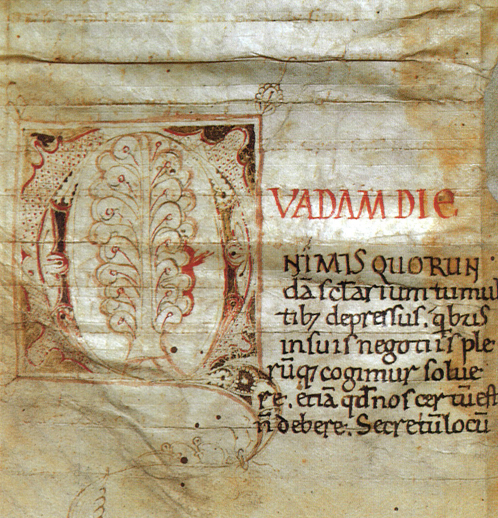 QVADAM DIE.
NIMIS QUORUN
dā scłarium tumul
tib; depressus. qbus
in suis negotiis ple
rūq; cogimur solue
re. etiā qđ nos certū est
n̄ debere; Secretū locū